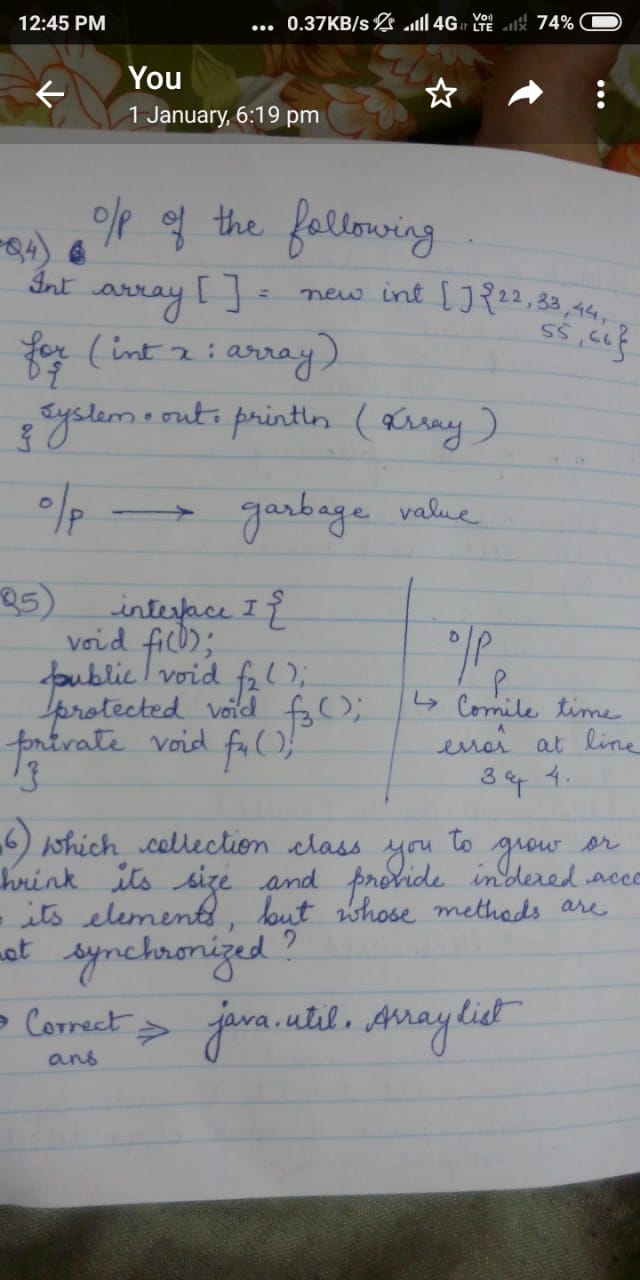 12:45 PM ... 0.37KB/s 4G VoLTE 74%
You
1 January, 6:19 pm
o/p of the following.
Q4)
Int array [ ] = new int [ ]{22,33,44,
55,66}
for (int x : array)
{
System.out.println (array)
}
o/p → garbage value
Q5) interface I {
void f1();
public void f2();
protected void f3();
private void f4();
}
o/p
p
↳ Comile time
error at line
3 & 4.
6) Which collection class you to grow or
hrink its size and provide indexed acce
its elements, but whose methods are
ot synchronized?
→ Correct ⇒ java.util.Arraylist
ans